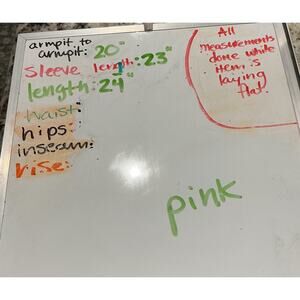 armpit to
armpit: 20"
Sleeve length: 23"
length: 24"
waist:
hips:
inseam:
rise:
All
measurements
done while
item is
laying
flat.
pink